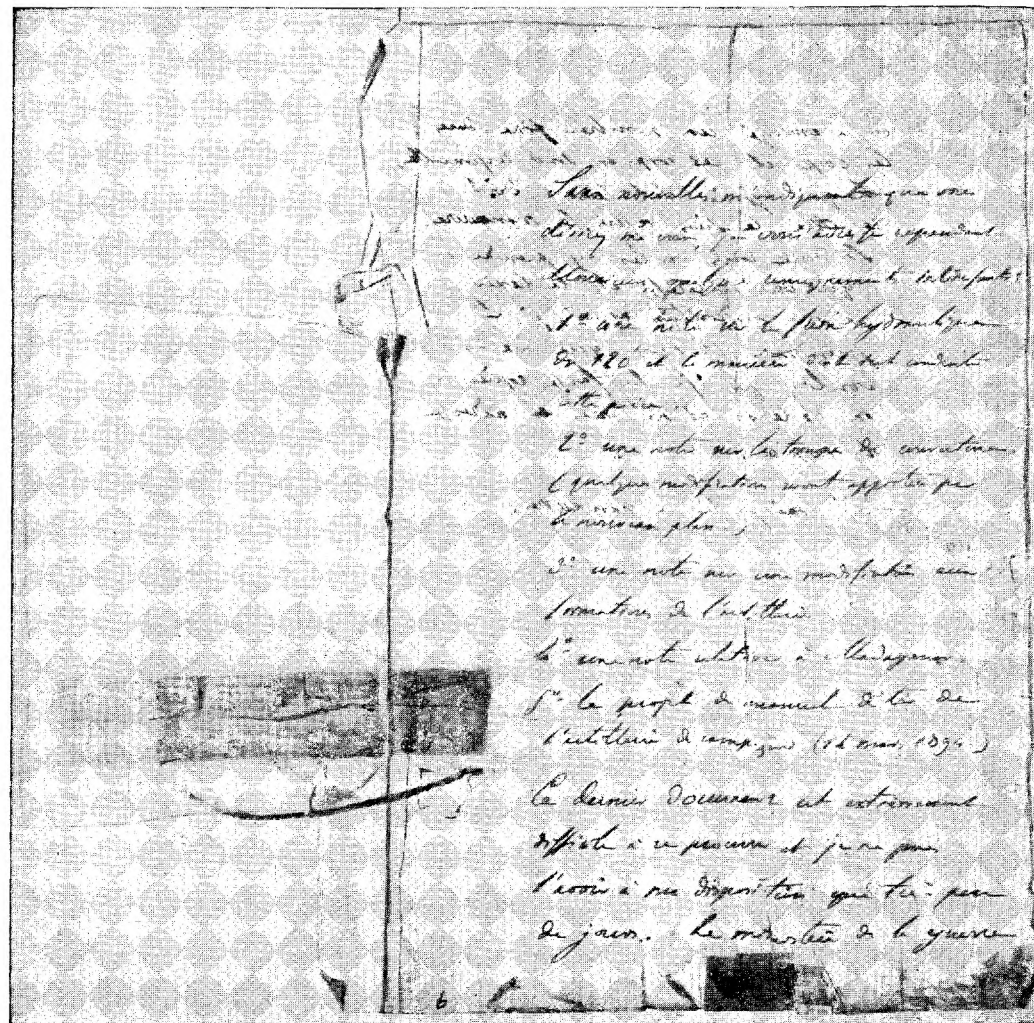 Sans nouvelles m'indiquant que vous
désirez me voir, je vous adresse cependant
Monsieur quelques renseignements intéressants
1° une note sur le frein hydraulique
du 120 et la manière dont s'est conduite
cette pièce.
2° une note sur les troupes de couverture
(quelques modifications seront apportées par
le nouveau plan)
3° une note sur une modification aux
formations de l'artillerie
4° une note relative à Madagascar.
5° le projet de manuel de tir de
l'artillerie de campagne (14 mars 1894)
Ce dernier document est extrêmement
difficile à se procurer et je ne puis
l'avoir à ma disposition que très peu
de jours. Le ministère de la guerre
6